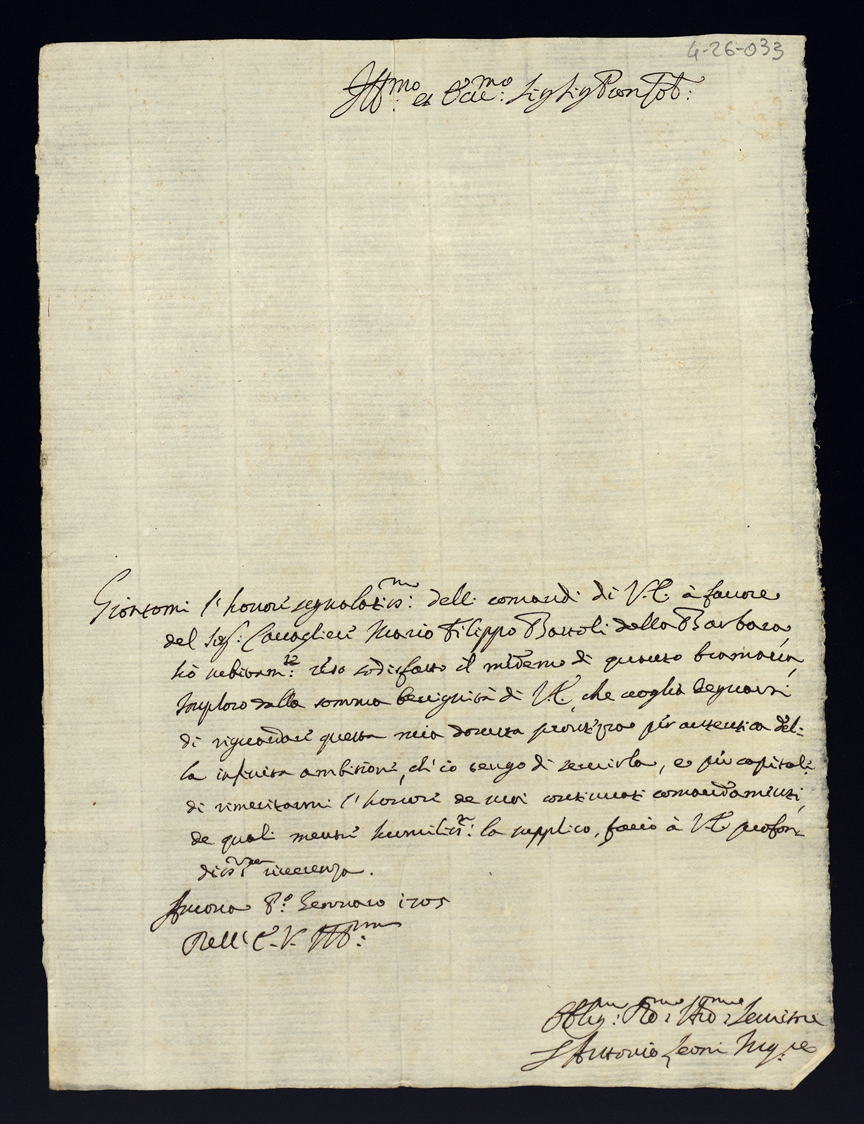 4-26-033
Ill.mo et Ecc.mo Sig Sig Pron Col:
Giontomi l'honore segnalatis.mo: delli comandi di V.E. à fauore
del Sig.r Caccaglieri Mario Filippo Bartoli dalla Barbara,
hò sodisfatto il mēdemo di quanto bramaua,
Imploro dalla somma benignità di V.E., che uoglia degnarsi
di riguardare questa mia douuta prontezza per autentica del-
la infinita ambitione, ch'io tengo di seruirla, e più
di rimeritarmi l'honore de suoi continuati comandamenti,
de quali mentre humilis.te: la supplico, faccio à V.E. profon-
dis.ma riuerenza.
Ancona P.o Gennaro 1705
Dell'E.V. Ill.ma:
Oblig.mo: Seruitore
Antonio Leoni